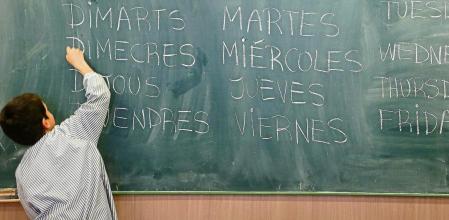 DIMARTS MARTES TUES
DIMECRES MIÉRCOLES WEDNE
DIJOUS JUEVES THURS
DIVENDRES VIERNES FRIDA